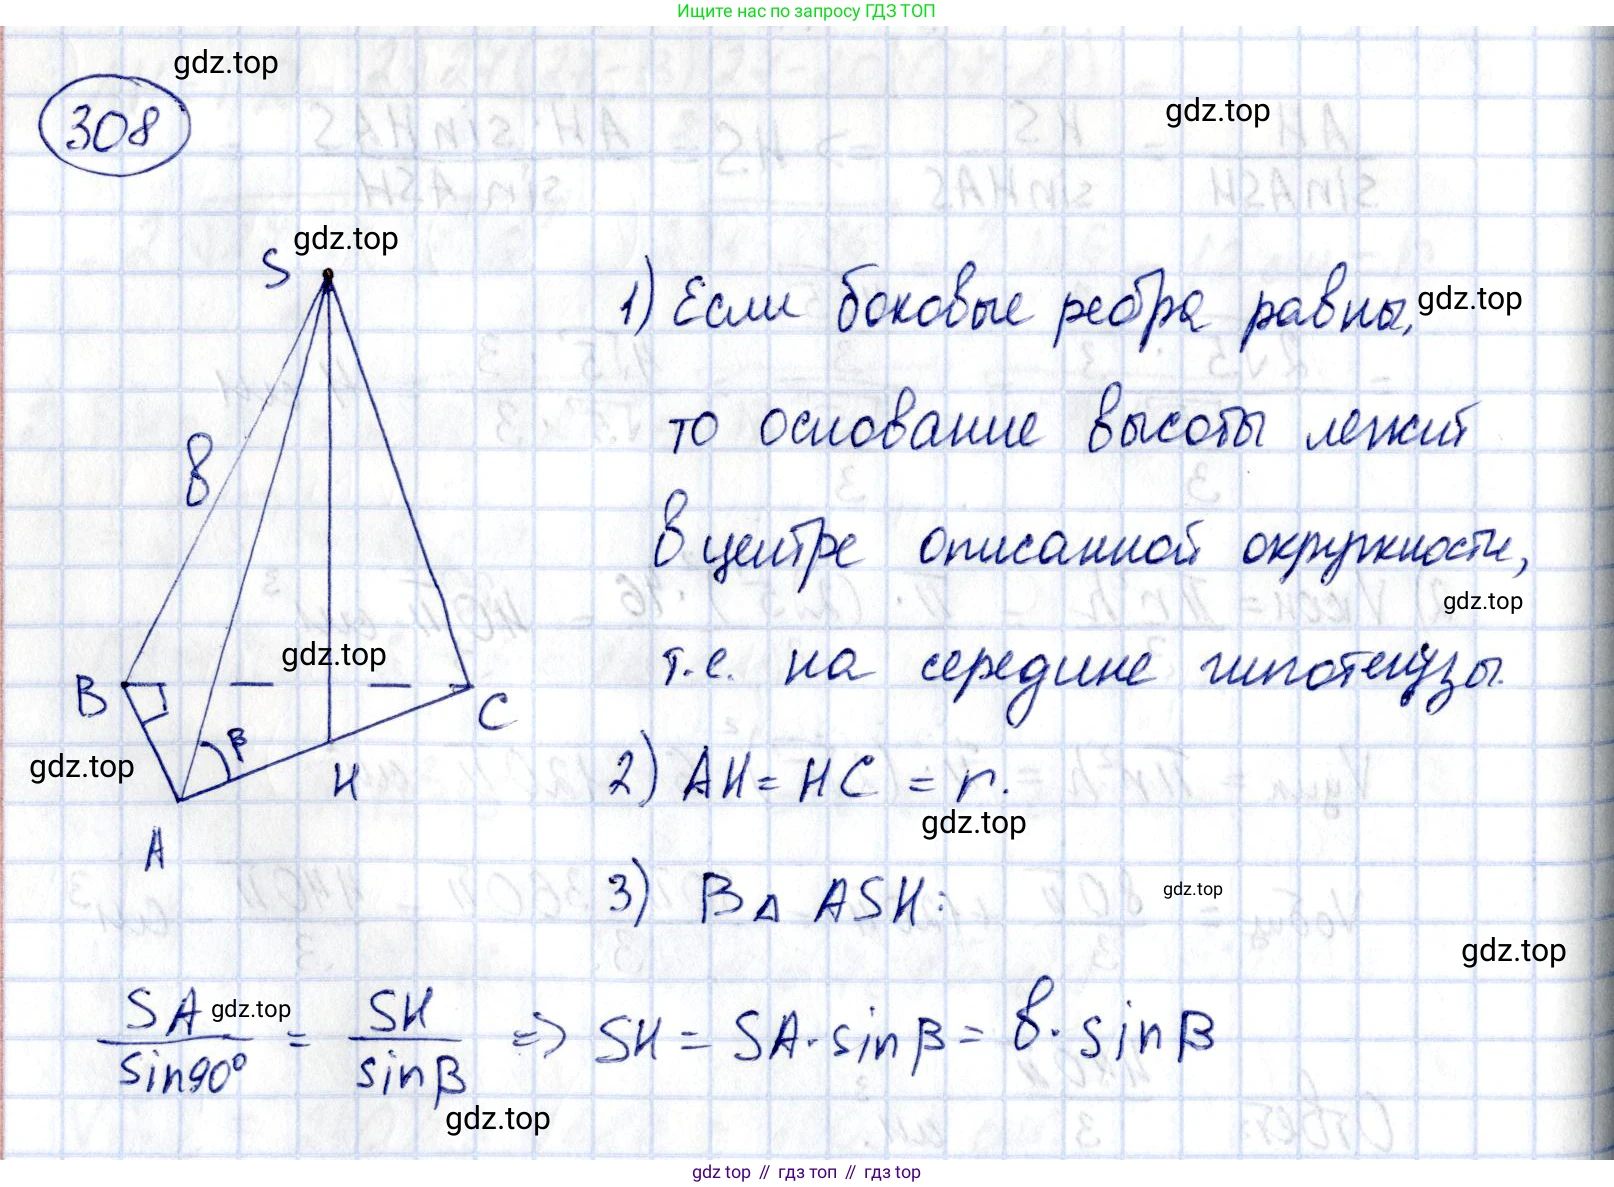 Ищите нас по запросу ГДЗ ТОП
gdz.top
308
gdz.top
S
gdz.top
1) Если боковые ребра равны,
gdz.top
то основание высоты лежит
в
в центре описанной окружности,
gdz.top
т.е. на середине гипотенузы.
gdz.top
B
C
β
gdz.top
H
A
2) AH = HC = r.
gdz.top
3) В △ ASH:
gdz.top
gdz.top
SA/sin90° = SH/sinβ => SH = SA · sinβ = в · sinβ
gdz.top
gdz.top
gdz top // гдз топ // гдз top